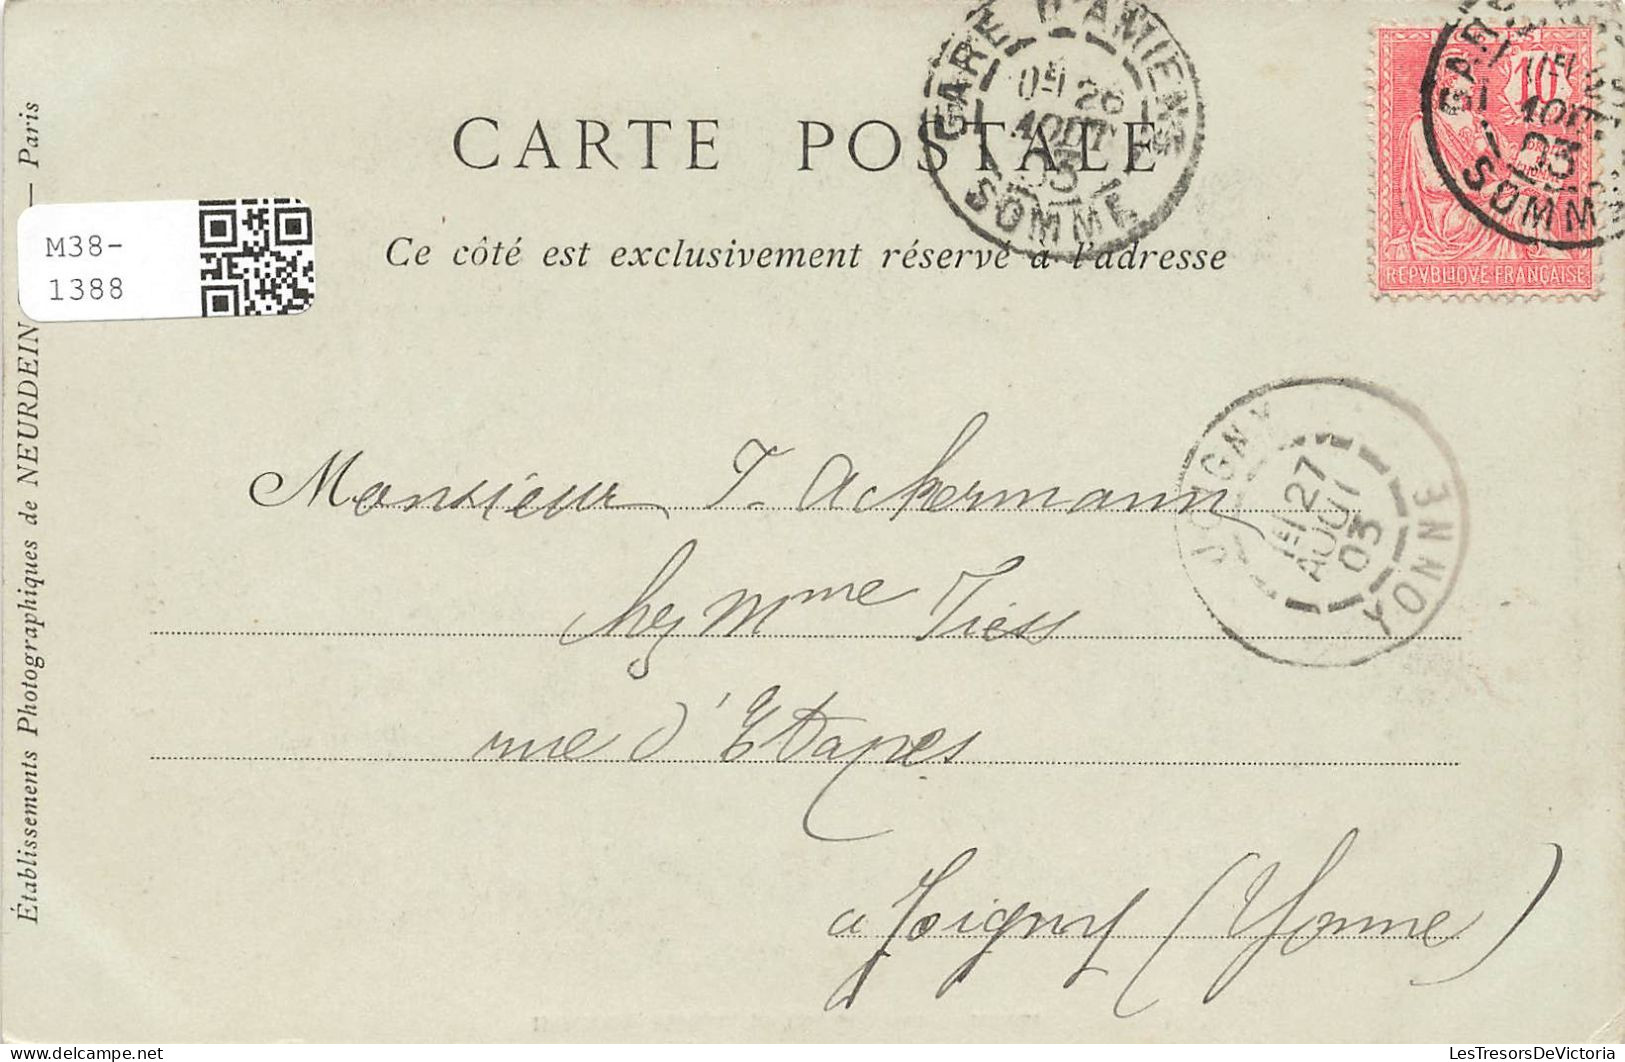 CARTE POSTALE
Ce côté est exclusivement réservé à l'adresse
GARE D'AMIENS
26
AOUT
03
SOMME
10
REPVBLIQVE FRANÇAISE
GAR
AOUT
03
SOMM
M38-
1388
Établissements Photographiques de NEURDEIN — Paris
JOIGNY
27
AOUT
03
YONNE
Monsieur T. Ackermann
chez Mme Tiess
rue d'Etapes
a Joigny (Yonne)
LesTresorsDeVictoria